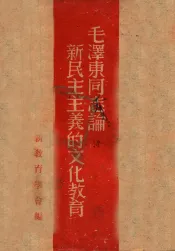 毛澤東同志論
新民主主義的文化教育
新教育學會編